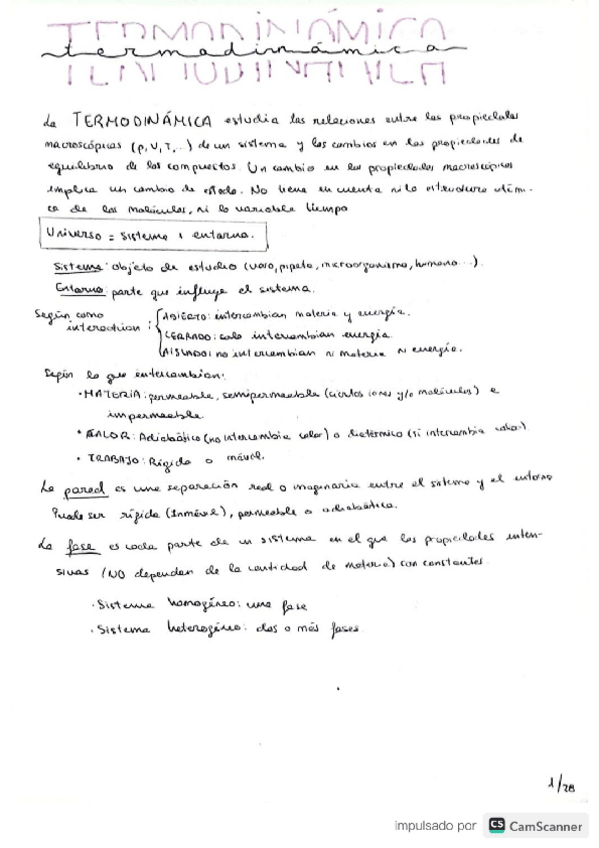 TERMODINÁMICA
termodinámica
La TERMODINÁMICA estudia las relaciones entre las propiedades
macroscópicas (p, V, T, ...) de un sistema y los cambios en las propiedades de
equilibrio de los compuestos. Un cambio en las propiedades macroscópicas
implica un cambio de estado. No tiene en cuenta ni la estructura atómi-
ca de las moléculas, ni la variable tiempo
Universo = sistema + entorno.
Sistema: objeto de estudio (vaso, pipeta, microorganismo, humano...).
Entorno: parte que influye el sistema.
Según como interactúan:
ABIERTO: intercambian materia y energía.
CERRADO: solo intercambian energía.
AISLADO: no intercambian ni materia ni energía.
Según lo que intercambian:
· MATERIA: permeable, semipermeable (ciertos iones y/o moléculas) e
impermeable.
· CALOR: Adiabático (no intercambia calor) o diatérmico (sí intercambia calor).
· TRABAJO: Rígida o móvil.
La pared es una separación real o imaginaria entre el sistema y el entorno
Puede ser rígida (inmóvil), permeable o adiabática.
La fase es cada parte de un sistema en el que las propiedades inten-
sivas (NO dependen de la cantidad de materia) son constantes.
· Sistema homogéneo: una fase
· Sistema heterogéneo: dos o más fases.
1/28
impulsado por CS CamScanner